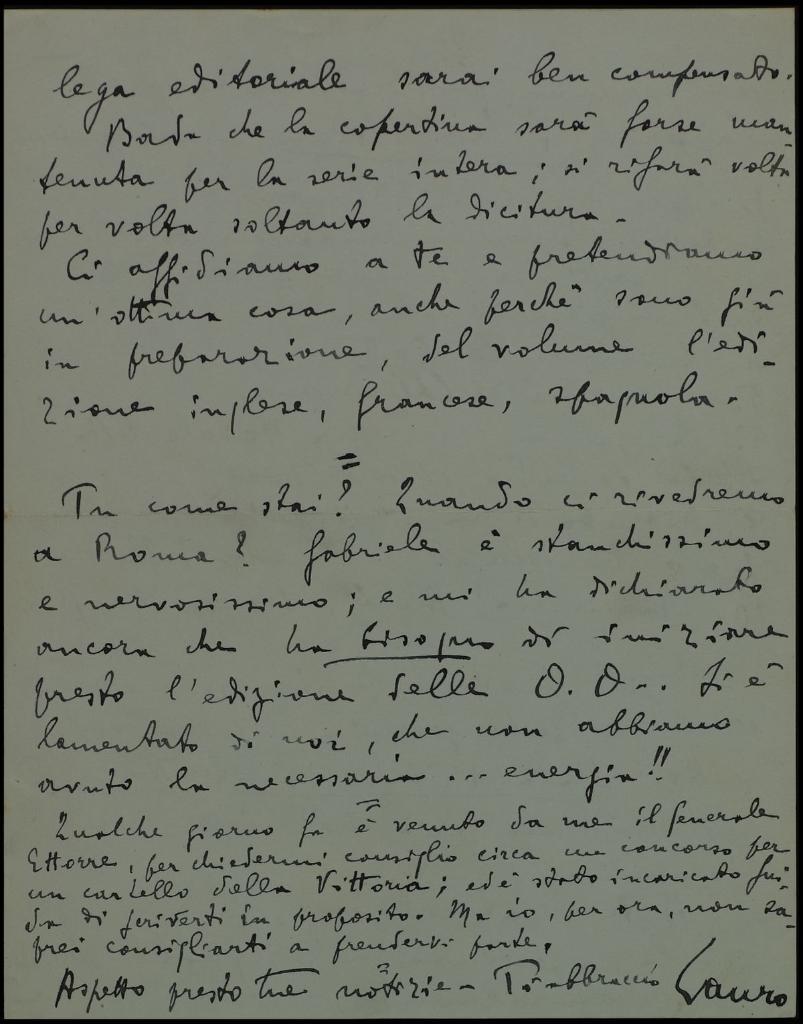 lega editoriale sarai ben compensato.
Bada che la copertina sarà forse man
tenuta per la serie intera; si rifarà volta
per volta soltanto la dicitura.
Ci affidiamo a te e pretendiamo
un'ottima cosa, anche perchè sono già
in preparazione, del volume l'edi-
zione inglese, francese, spagnola.
=
Tu come stai? Quando ci rivedremo
a Roma? Gabriele è stanchissimo
e nervosissimo; e mi ha dichiarato
ancora che ha bisogno di iniziare
presto l'edizione delle O. O... Si è
lamentato di noi, che non abbiamo
avuto la necessaria ... energia!!
=
Qualche giorno fa è venuto da me il generale
Ettorre, per chiedermi consiglio circa un concorso per
un cartello della Vittoria; ed è stato incaricato Gui
da di scriverti in proposito. Ma io, per ora, non sa-
prei consigliarti a prendervi parte.
=
Aspetto presto tue notizie - Ti abbraccio Lauro